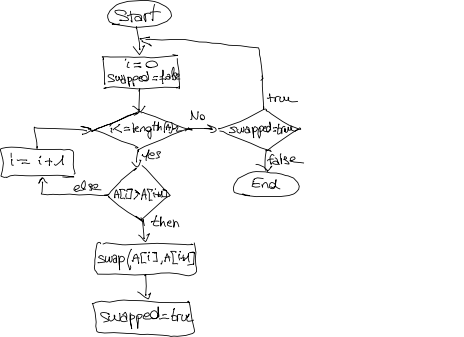 Start
i=0
swapped=false
i<=length(A)-1
No
swapped=true
true
false
End
yes
i=i+1
else
A[i]>A[i+1]
then
swap(A[i],A[i+1]
swapped=true